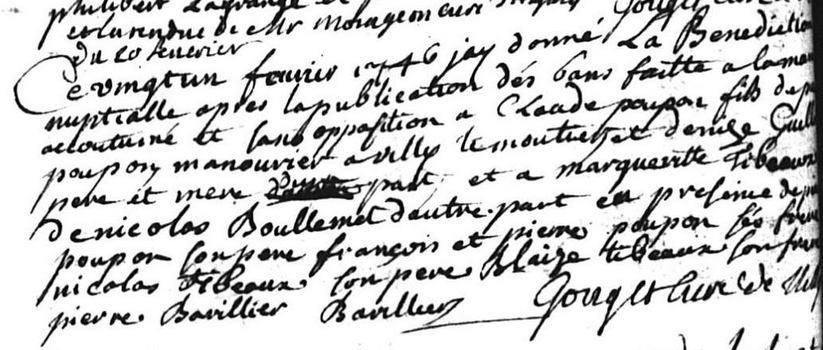 philibert Lagrange et
et la rendue de Mr moingeon curé Gouget curé
du 20 feuvrier
Ce vingt un fevrier 1746 jay donné La Benediction
nuptialle apres la publication des bans faitte a la ma
accoutumé et sans opposition a Claude poupon fils de p
poupon manouvrier a villy le moutier et denise Guill
pere et mere part et a margueritte Tibeaux
de nicolas Boullemet dautre part en presence de
poupon son pere françois et pierre poupon ses frere
nicolas Tibeaux son pere Blaize tibeaux son frere
pierre Bavillier Bavillier Gouget Curé de Vill